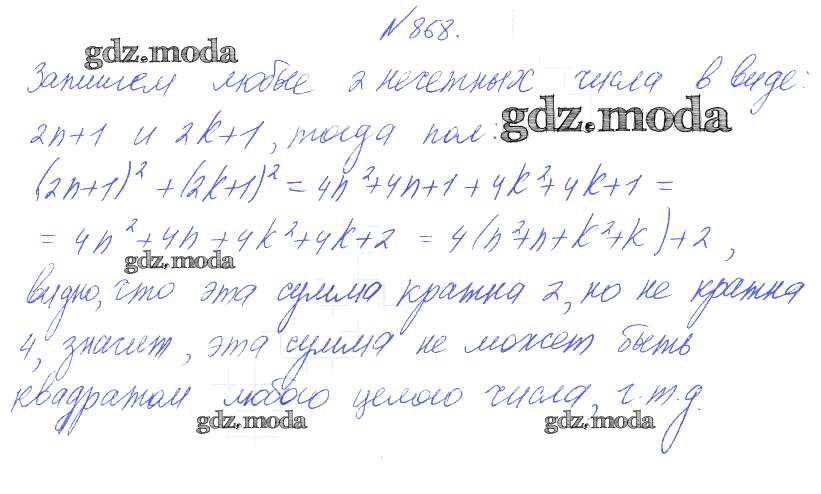 №868.
gdz.moda
Запишем любые 2 нечетных числа в виде:
2n+1 и 2k+1, тогда пол: gdz.moda
(2n+1)² + (2k+1)² = 4n²+4n+1+4k²+4k+1 =
= 4n²+4n+4k²+4k+2 = 4(n²+n+k²+k)+2,
gdz.moda
видно, что эта сумма кратна 2, но не кратна
4, значит, эта сумма не может быть
квадратом любого целого числа, ч.т.д.
gdz.moda gdz.moda